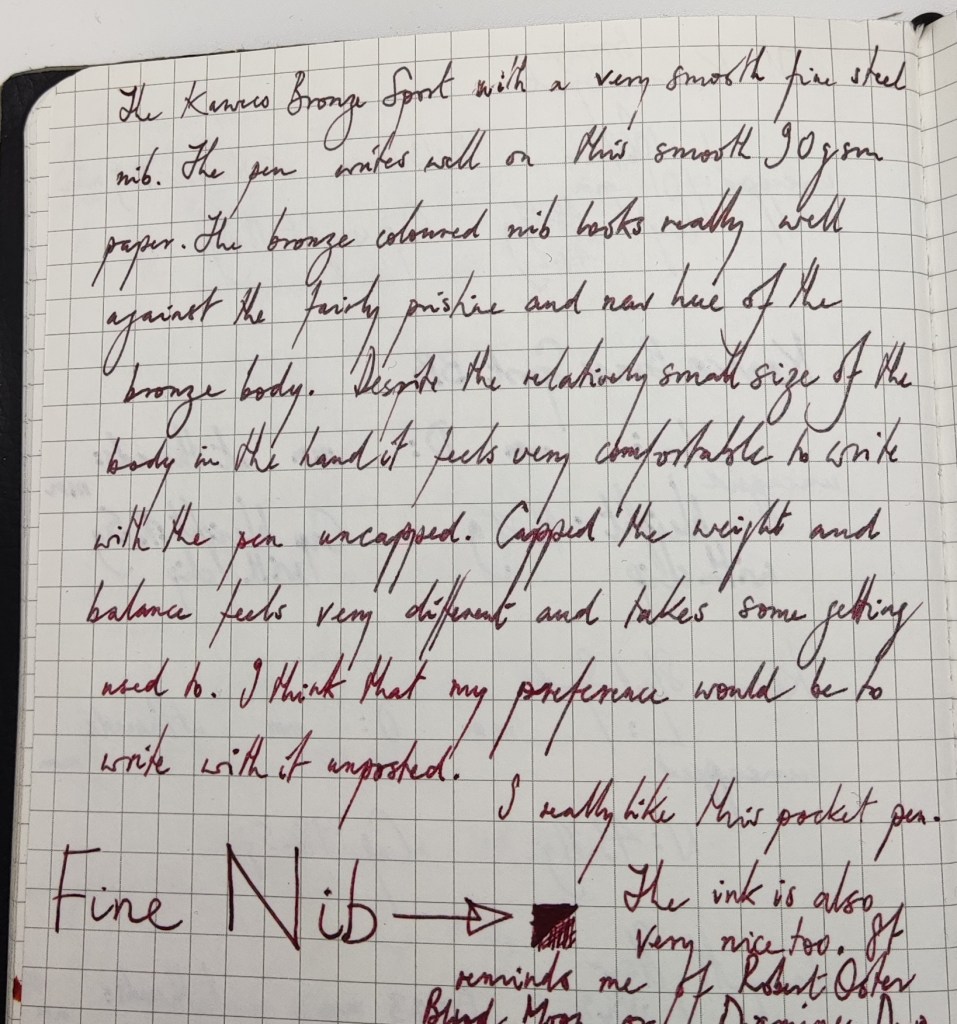 The Kaweco Bronze Sport with a very smooth fine steel
nib. The pen writes well on this smooth 90gsm
paper. The bronze coloured nib looks really well
against the fairly pristine and new hue of the
bronze body. Despite the relatively small size of the
body in the hand it feels very comfortable to write
with the pen uncapped. Capped the weight and
balance feels very different and takes some getting
used to. I think that my preference would be to
write with it unposted.
I really like this pocket pen.
Fine Nib
The ink is also
very nice too. It
reminds me of Robert Oster
Blood Moon or